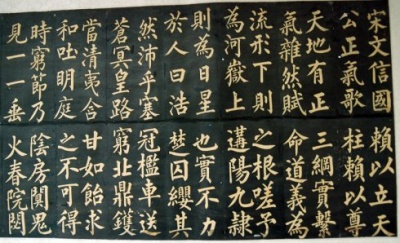 宋文信國
公正氣歌
天地有正
氣雜然賦
流形下則
為河嶽上
則為日星
於人曰浩
然沛乎塞
蒼冥皇路
當清夷含
和吐明庭
時窮節乃
見一一垂
賴以立天
柱賴以尊
三綱實繫
命道義為
之根嗟予
遘陽九隸
也實不力
楚囚纓其
冠檻車送
窮北鼎鑊
甘如飴求
之不可得
陰房闃鬼
火春院閟